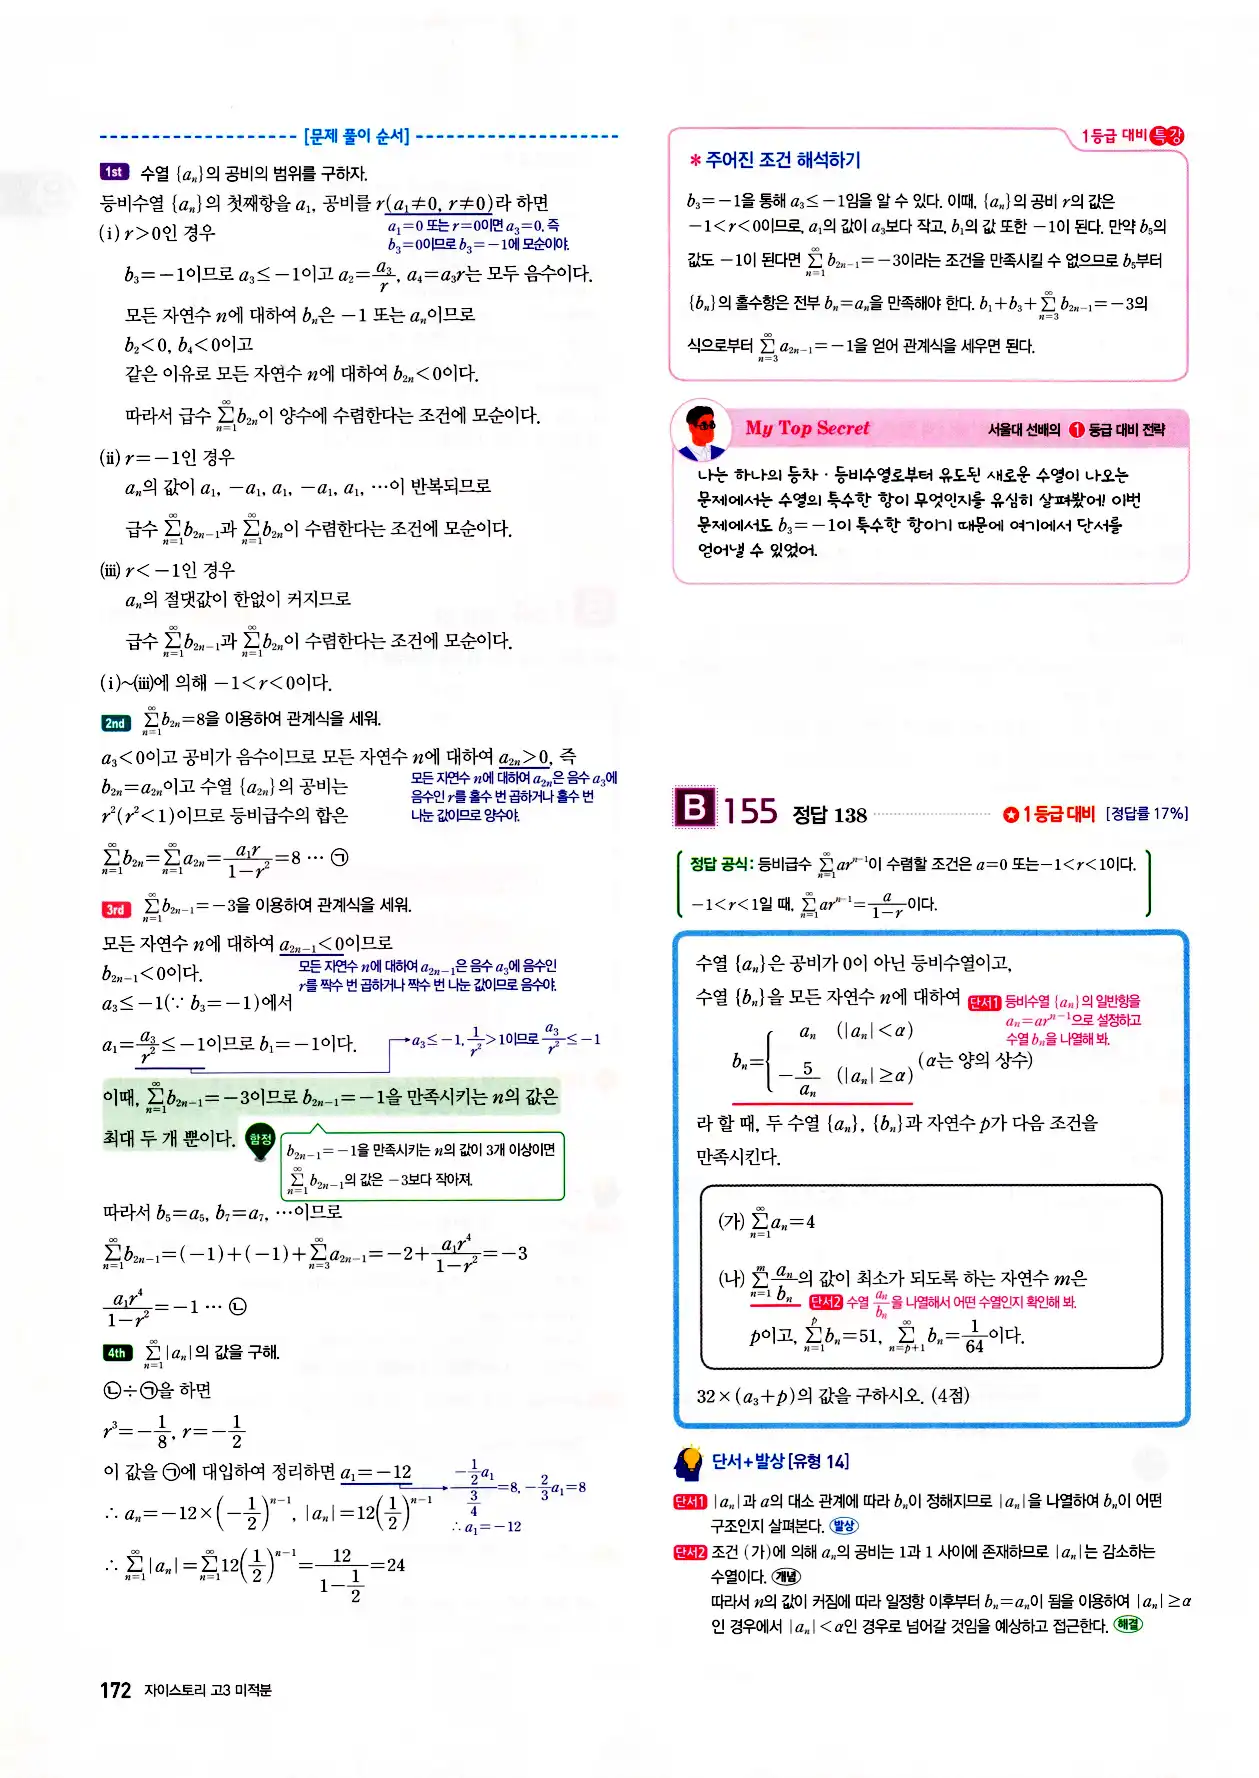 [문제 풀이 순서]
1st 수열 {aₙ}의 공비의 범위를 구하자.
등비수열 {aₙ}의 첫째항을 a₁, 공비를 r(a₁≠0, r≠0)라 하면
a₁=0 또는 r=0이면 a₃=0, 즉
b₃=0이므로 b₃=-1에 모순이야.
(i) r>0인 경우
b₃=-1이므로 a₃≤-1이고 a₂=a₃/r, a₄=a₃r는 모두 음수이다.
모든 자연수 n에 대하여 bₙ은 -1 또는 aₙ이므로
b₂<0, b₄<0이고
같은 이유로 모든 자연수 n에 대하여 b₂ₙ<0이다.
따라서 급수 ∑(n=1,∞) b₂ₙ이 양수에 수렴한다는 조건에 모순이다.
(ii) r=-1인 경우
aₙ의 값이 a₁, -a₁, a₁, -a₁, a₁, ···이 반복되므로
급수 ∑(n=1,∞) b₂ₙ₋₁과 ∑(n=1,∞) b₂ₙ이 수렴한다는 조건에 모순이다.
(iii) r<-1인 경우
aₙ의 절댓값이 한없이 커지므로
급수 ∑(n=1,∞) b₂ₙ₋₁과 ∑(n=1,∞) b₂ₙ이 수렴한다는 조건에 모순이다.
(i)~(iii)에 의해 -1<r<0이다.
2nd ∑(n=1,∞) b₂ₙ=8을 이용하여 관계식을 세워.
a₃<0이고 공비가 음수이므로 모든 자연수 n에 대하여 a₂ₙ>0, 즉
모든 자연수 n에 대하여 a₂ₙ은 음수 a₃에
음수인 r를 홀수 번 곱하거나 홀수 번
나눈 값이므로 양수야.
b₂ₙ=a₂ₙ이고 수열 {a₂ₙ}의 공비는
r²(r²<1)이므로 등비급수의 합은
∑(n=1,∞) b₂ₙ=∑(n=1,∞) a₂ₙ=a₁r/(1-r²)=8 ··· ㉠
3rd ∑(n=1,∞) b₂ₙ₋₁=-3을 이용하여 관계식을 세워.
모든 자연수 n에 대하여 a₂ₙ₋₁<0이므로
모든 자연수 n에 대하여 a₂ₙ₋₁은 음수 a₃에 음수인
r를 짝수 번 곱하거나 짝수 번 나눈 값이므로 음수야.
b₂ₙ₋₁<0이다.
a₃≤-1(∵ b₃=-1)에서
a₁=a₃/r²≤-1이므로 b₁=-1이다.
a₃≤-1, 1/r²>1이므로 a₃/r²≤-1
이때, ∑(n=1,∞) b₂ₙ₋₁=-3이므로 b₂ₙ₋₁=-1을 만족시키는 n의 값은
최대 두 개 뿐이다.
함정
b₂ₙ₋₁=-1을 만족시키는 n의 값이 3개 이상이면
∑(n=1,∞) b₂ₙ₋₁의 값은 -3보다 작아져.
따라서 b₅=a₅, b₇=a₇, ···이므로
∑(n=1,∞) b₂ₙ₋₁=(-1)+(-1)+∑(n=3,∞) a₂ₙ₋₁=-2+a₁r⁴/(1-r²)=-3
a₁r⁴/(1-r²)=-1 ··· ㉡
4th ∑(n=1,∞) |aₙ|의 값을 구해.
㉡÷㉠을 하면
r³=-1/8, r=-1/2
이 값을 ㉠에 대입하여 정리하면 a₁=-12
(-1/2 a₁)/(3/4)=8, -2/3 a₁=8
∴ a₁=-12
∴ aₙ=-12×(-1/2)ⁿ⁻¹, |aₙ|=12(1/2)ⁿ⁻¹
∴ ∑(n=1,∞) |aₙ|=∑(n=1,∞) 12(1/2)ⁿ⁻¹=12/(1-1/2)=24
172 자이스토리 고3 미적분
1등급 대비 특강
* 주어진 조건 해석하기
b₃=-1을 통해 a₃≤-1임을 알 수 있다. 이때, {aₙ}의 공비 r의 값은
-1<r<0이므로, a₁의 값이 a₃보다 작고, b₁의 값 또한 -1이 된다. 만약 b₅의
값도 -1이 된다면 ∑(n=1,∞) b₂ₙ₋₁=-3이라는 조건을 만족시킬 수 없으므로 b₅부터
{bₙ}의 홀수항은 전부 bₙ=aₙ을 만족해야 한다. b₁+b₃+∑(n=3,∞) b₂ₙ₋₁=-3의
식으로부터 ∑(n=3,∞) a₂ₙ₋₁=-1을 얻어 관계식을 세우면 된다.
My Top Secret 서울대 선배의 1 등급 대비 전략
나는 하나의 등차·등비수열로부터 유도된 새로운 수열이 나오는
문제에서는 수열의 특수한 항이 무엇인지를 유심히 살펴봤어! 이번
문제에서도 b₃=-1이 특수한 항이기 때문에 여기에서 단서를
얻어낼 수 있었어.
B 155 정답 138 ✪ 1등급 대비 [정답률 17%]
정답 공식: 등비급수 ∑(n=1,∞) arⁿ⁻¹이 수렴할 조건은 a=0 또는 -1<r<1이다.
-1<r<1일 때, ∑(n=1,∞) arⁿ⁻¹=a/(1-r)이다.
수열 {aₙ}은 공비가 0이 아닌 등비수열이고,
수열 {bₙ}을 모든 자연수 n에 대하여
단서1 등비수열 {aₙ}의 일반항을
aₙ=arⁿ⁻¹으로 설정하고
수열 bₙ을 나열해 봐.
bₙ={ aₙ (|aₙ|<α)
-5/aₙ (|aₙ|≥α) (α는 양의 상수)
라 할 때, 두 수열 {aₙ}, {bₙ}과 자연수 p가 다음 조건을
만족시킨다.
(가) ∑(n=1,∞) aₙ=4
(나) ∑(n=1,m) aₙ/bₙ의 값이 최소가 되도록 하는 자연수 m은
단서2 수열 aₙ/bₙ을 나열해서 어떤 수열인지 확인해 봐.
p이고, ∑(n=1,p) bₙ=51, ∑(n=p+1,∞) bₙ=1/64이다.
32×(a₃+p)의 값을 구하시오. (4점)
단서+발상 [유형 14]
단서1 |aₙ|과 α의 대소 관계에 따라 bₙ이 정해지므로 |aₙ|을 나열하여 bₙ이 어떤
구조인지 살펴본다. 발상
단서2 조건 (가)에 의해 aₙ의 공비는 1과 1 사이에 존재하므로 |aₙ|는 감소하는
수열이다. 개념
따라서 n의 값이 커짐에 따라 일정항 이후부터 bₙ=aₙ이 됨을 이용하여 |aₙ|≥α
인 경우에서 |aₙ|<α인 경우로 넘어갈 것임을 예상하고 접근한다. 해결